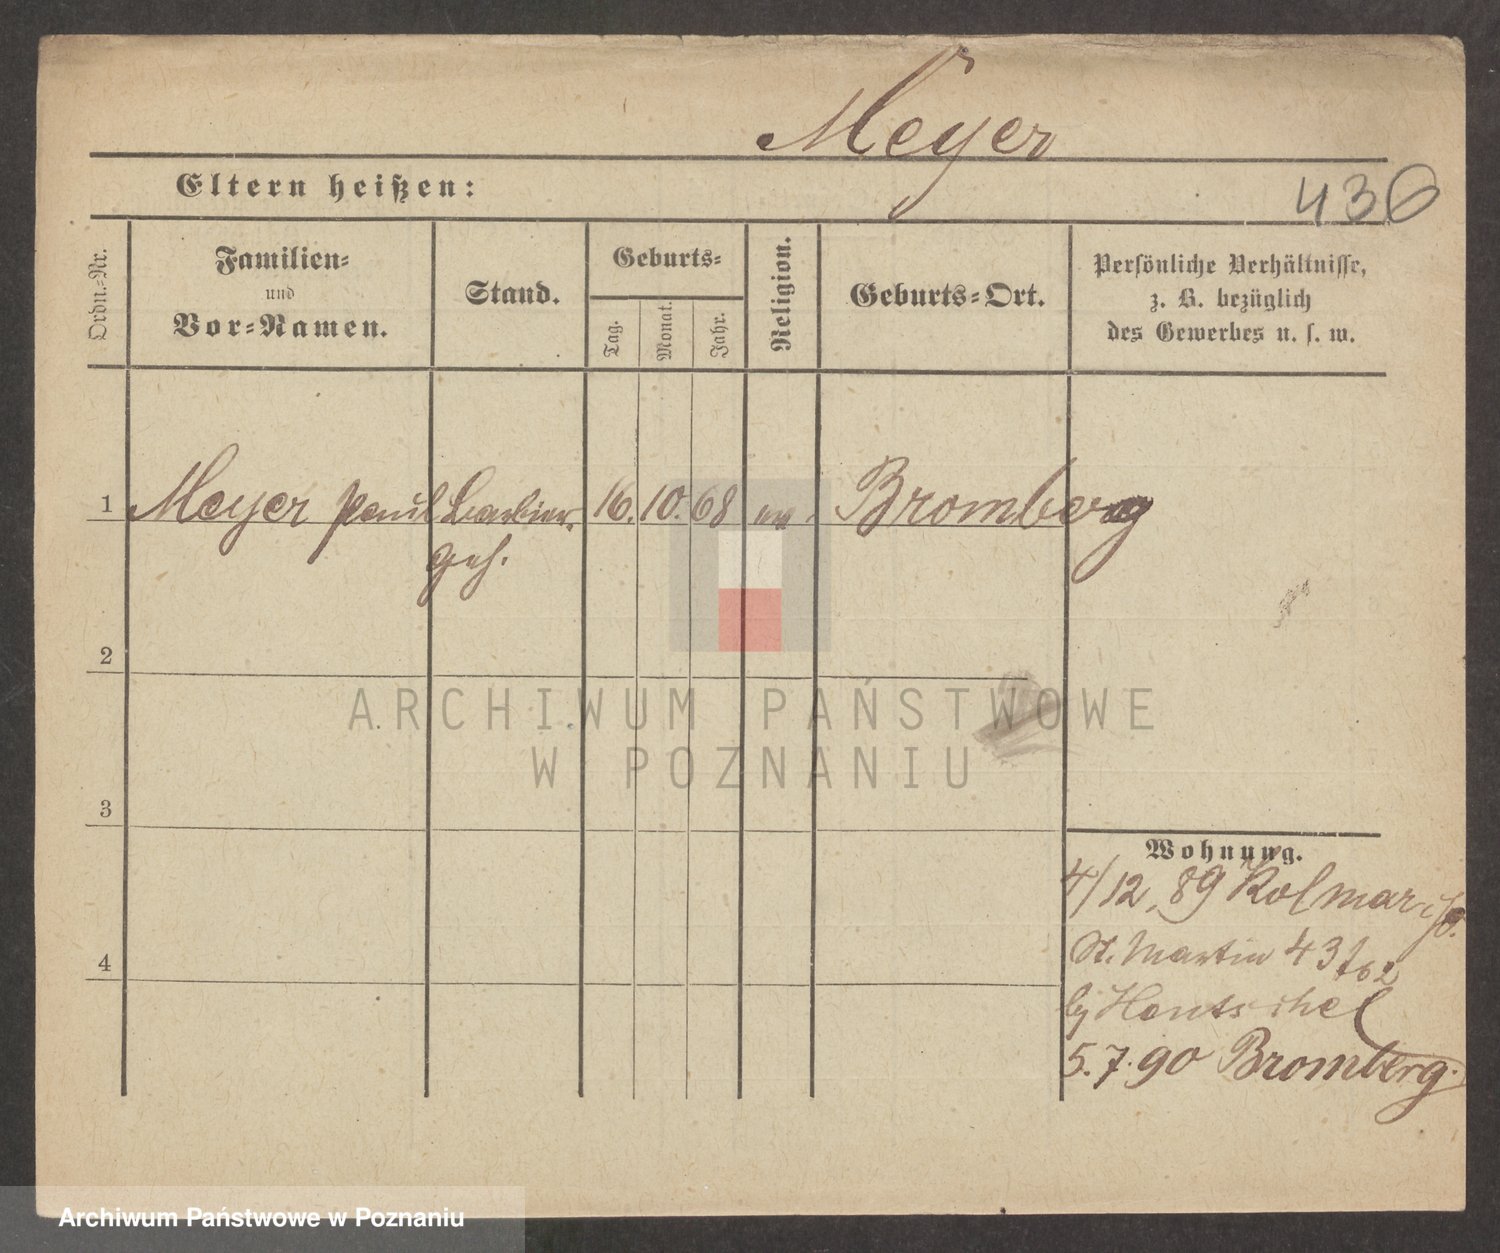 Meyer
Eltern heißen:
436
Ordn.-Nr.
Familien-
und
Vor-Namen.
Stand.
Geburts-
Tag.
Monat.
Jahr.
Religion.
Geburts-Ort.
Persönliche Verhältnisse,
z. B. bezüglich
des Gewerbes u. s. w.
1 Meyer Paul Barbier 16. 10. 68 ev. Bromberg
geh.
2
ARCHIWUM PAŃSTWOWE
W POZNANIU
3
Wohnung.
4/12. 89 Kolmar i/P.
St. Martin 43
4
bj Hentschel
5. 7. 90 Bromberg.
Archiwum Państwowe w Poznaniu